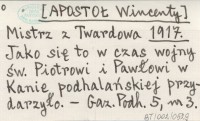 [APOSTOŁ Wincenty]
Mistrz z Twardowa 1917.
Jako się to w czas wojny
św. Piotrowi i Pawłowi w
Kanie podhalańskiej przy-
darzyło. — Gaz. Podh. 5, nr 3.